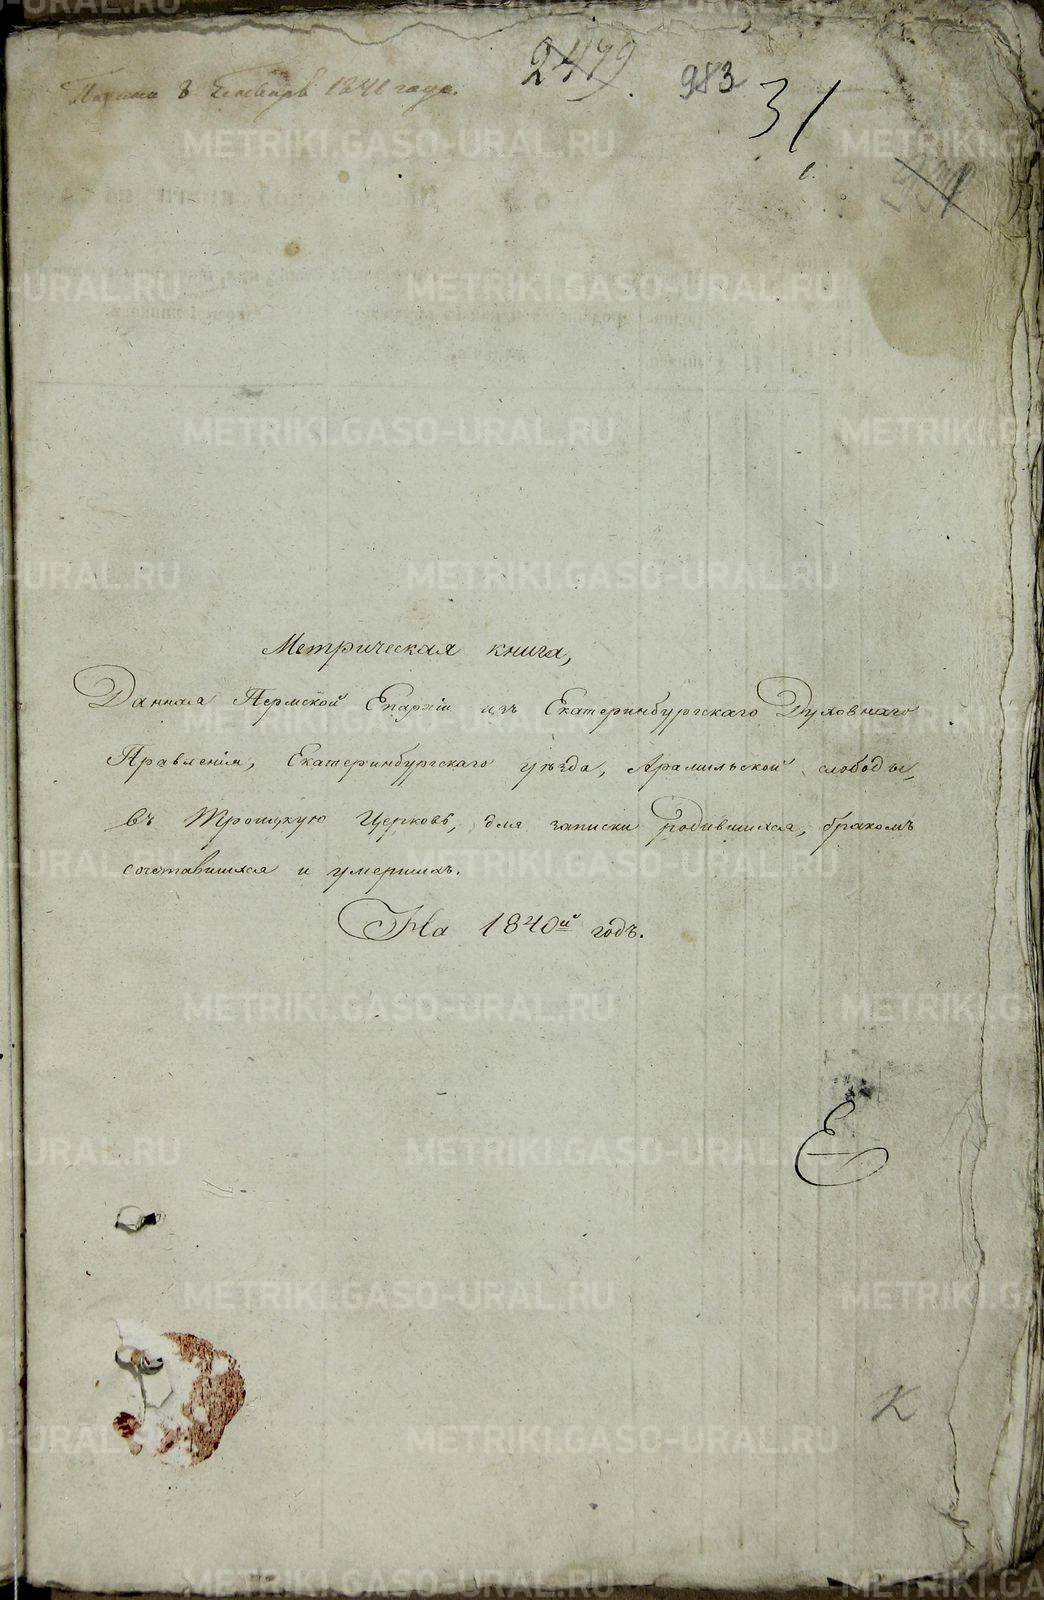 2479.
983
31
931
1841 года.
Метрическая книга,
Данная Пермской Епархіи изъ Екатеринбургскаго Духовнаго
Правленія, Екатеринбургскаго уѣзда, Арамильской слободы,
въ Троицкую Церковь, для записки Родившихся, бракомъ
сочетавшихся и умершихъ.
На 1840й годъ.
К
METRIKI.GASO-URAL.RU